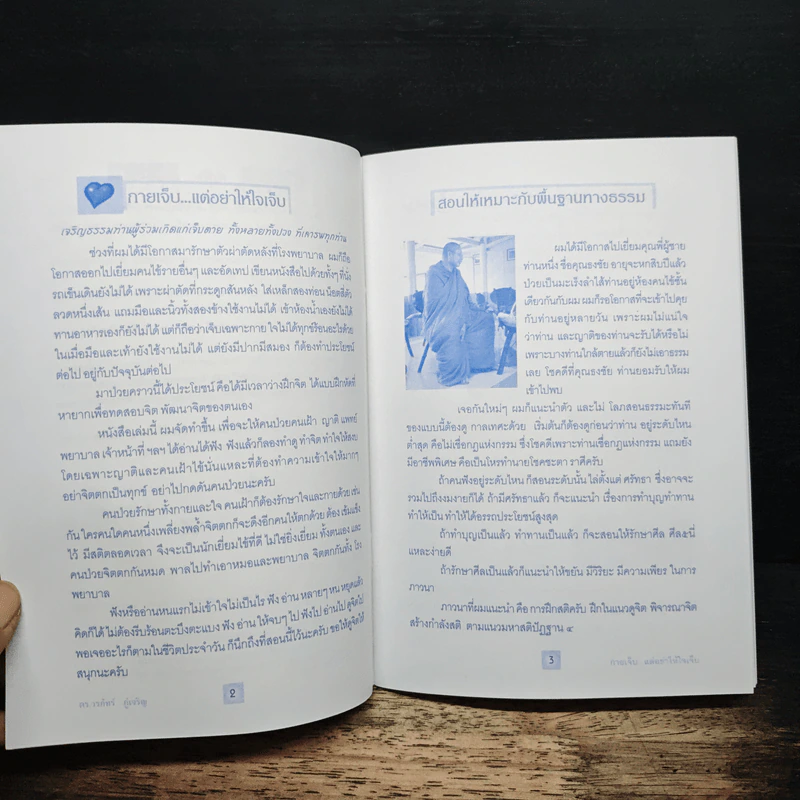 กายเจ็บ...แต่อย่าให้ใจเจ็บ
เจริญธรรมท่านผู้ร่วมเกิดแก่เจ็บตาย ทั้งหลายทั้งปวง ที่เคารพทุกท่าน
ช่วงที่ผมได้มีโอกาสมารักษาตัวผ่าตัดหลังที่โรงพยาบาล ผมก็ถือ
โอกาสออกไปเยี่ยมคนไข้รายอื่นๆ และอัดเทป เขียนหนังสือไปด้วยทั้งๆ ที่นั่ง
รถเข็นเดินยังไม่ได้ เพราะผ่าตัดที่กระดูกสันหลัง ใส่เหล็กสองท่อน น็อตสี่ตัว
ลวดหนึ่งเส้น แถมมือและนิ้วทั้งสองข้างใช้งานไม่ได้ เข้าห้องน้ำเองยังไม่ได้
ทานอาหารเองก็ยังไม่ได้ แต่ก็ถือว่าเจ็บเฉพาะกาย ใจไม่ได้ทุกข์ร้อนอะไรด้วย
ในเมื่อมือและเท้ายังใช้งานไม่ได้ แต่ยังมีปากมีสมอง ก็ต้องทำประโยชน์
ต่อไป อยู่กับปัจจุบันต่อไป
มาป่วยคราวนี้ได้ประโยชน์ คือได้มีเวลาว่างฝึกจิต ได้แบบฝึกหัดที่
หายากเพื่อทดสอบจิต พัฒนาจิตของตนเอง
หนังสือเล่มนี้ ผมจัดทำขึ้น เพื่อจะให้คนป่วยคนเฝ้า ญาติ แพทย์
พยาบาล เจ้าหน้าที่ ฯลฯ ได้อ่านได้ฟัง ฟังแล้วก็ลองทำดู ทำจิต ทำใจให้สงบ
โดยเฉพาะญาติและคนเฝ้าไข้นั่นแหละที่ต้องทำความเข้าใจให้มากๆ
อย่าจิตตกเป็นทุกข์ อย่าไปกดดันคนป่วยนะครับ
คนป่วยรักษาทั้งกายและใจ คนเฝ้าก็ต้องรักษาใจและกายด้วย เช่น
กัน ใครคนใดคนหนึ่งเพลี่ยงพล้ำจิตตกก็จะดึงอีกคนให้ตกด้วย ต้อง เข้มแข็ง
ไว้ มีสติตลอดเวลา จึงจะเป็นนักเยี่ยมไข้ที่ดี ไม่ใช่ยิ่งเยี่ยม ทั้งตนเอง และ
คนป่วยจิตตกกันหมด พาลไปทำเอาหมอและพยาบาล จิตตกกันทั้ง โรง
พยาบาล
ฟังหรืออ่านหนแรกไม่เข้าใจไม่เป็นไร ฟัง อ่าน หลายๆ หน หยุดแล้ว
คิดก็ได้ ไม่ต้องรีบร้อนตะบึงตะแบง ฟัง อ่าน ให้จบๆ ไป ฟังไป อ่านไป ดูจิตไป
พอเจออะไรก็ตามในชีวิตประจำวัน ก็นึกถึงที่สอนนี้ไว้นะครับ ขอให้ดูจิตให้
สนุกนะครับ
2
สอนให้เหมาะกับพื้นฐานทางธรรม
ผมได้มีโอกาสไปเยี่ยมคุณพี่ผู้ชาย
ท่านหนึ่ง ชื่อคุณธงชัย อายุจะหกสิบปีแล้ว
ป่วยเป็นมะเร็งลำไส้ ท่านอยู่ห้องคนไข้ชั้น
เดียวกันกับผม ผมก็รอโอกาสที่จะเข้าไปคุย
กับท่านอยู่หลายวัน เพราะผมไม่แน่ใจ
ว่าท่าน และญาติของท่านจะรับได้หรือไม่
เพราะบางท่านใกล้ตายแล้วก็ยังไม่เอาธรรม
เลย โชคดีที่คุณธงชัย ท่านยอมรับให้ผม
เข้าไปพบ
เจอกันใหม่ๆ ผมก็แนะนำตัว และไม่ โลภสอนธรรมะทันที
ของแบบนี้ต้องดู กาลเทศะด้วย เริ่มต้นก็ต้องดูก่อนว่าท่าน อยู่ระดับไหน
ต่ำสุด คือไม่เชื่อกฎแห่งกรรม ซึ่งโชคดีเพราะท่านเชื่อกฎแห่งกรรม แถมยัง
มีอาชีพพิเศษ คือเป็นโหรทำนายโชคชะตา ราศีครับ
ถ้าคนฟังอยู่ระดับไหน ก็สอนระดับนั้น ไล่ตั้งแต่ ศรัทธา ซึ่งอาจจะ
รวมไปถึงงมงายก็ได้ ถ้ามีศรัทธาแล้ว ก็จะแนะนำ เรื่องการทำบุญทำทาน
ทำให้เป็น ทำให้ได้อรรถประโยชน์สูงสุด
ถ้าทำบุญเป็นแล้ว ทำทานเป็นแล้ว ก็จะสอนให้รักษาศีล ศีล๕นี่
แหละง่ายดี
ถ้ารักษาศีลเป็นแล้วก็แนะนำให้ขยัน มีวิริยะ มีความเพียร ในการ
ภาวนา
ภาวนาที่ผมแนะนำ คือ การฝึกสติครับ ฝึกในแนวดูจิต พิจารณาจิต
สร้างกำลังสติ ตามแนวมหาสติปัฏฐาน ๔
3
กายเจ็บ...แต่อย่าให้ใจเจ็บ